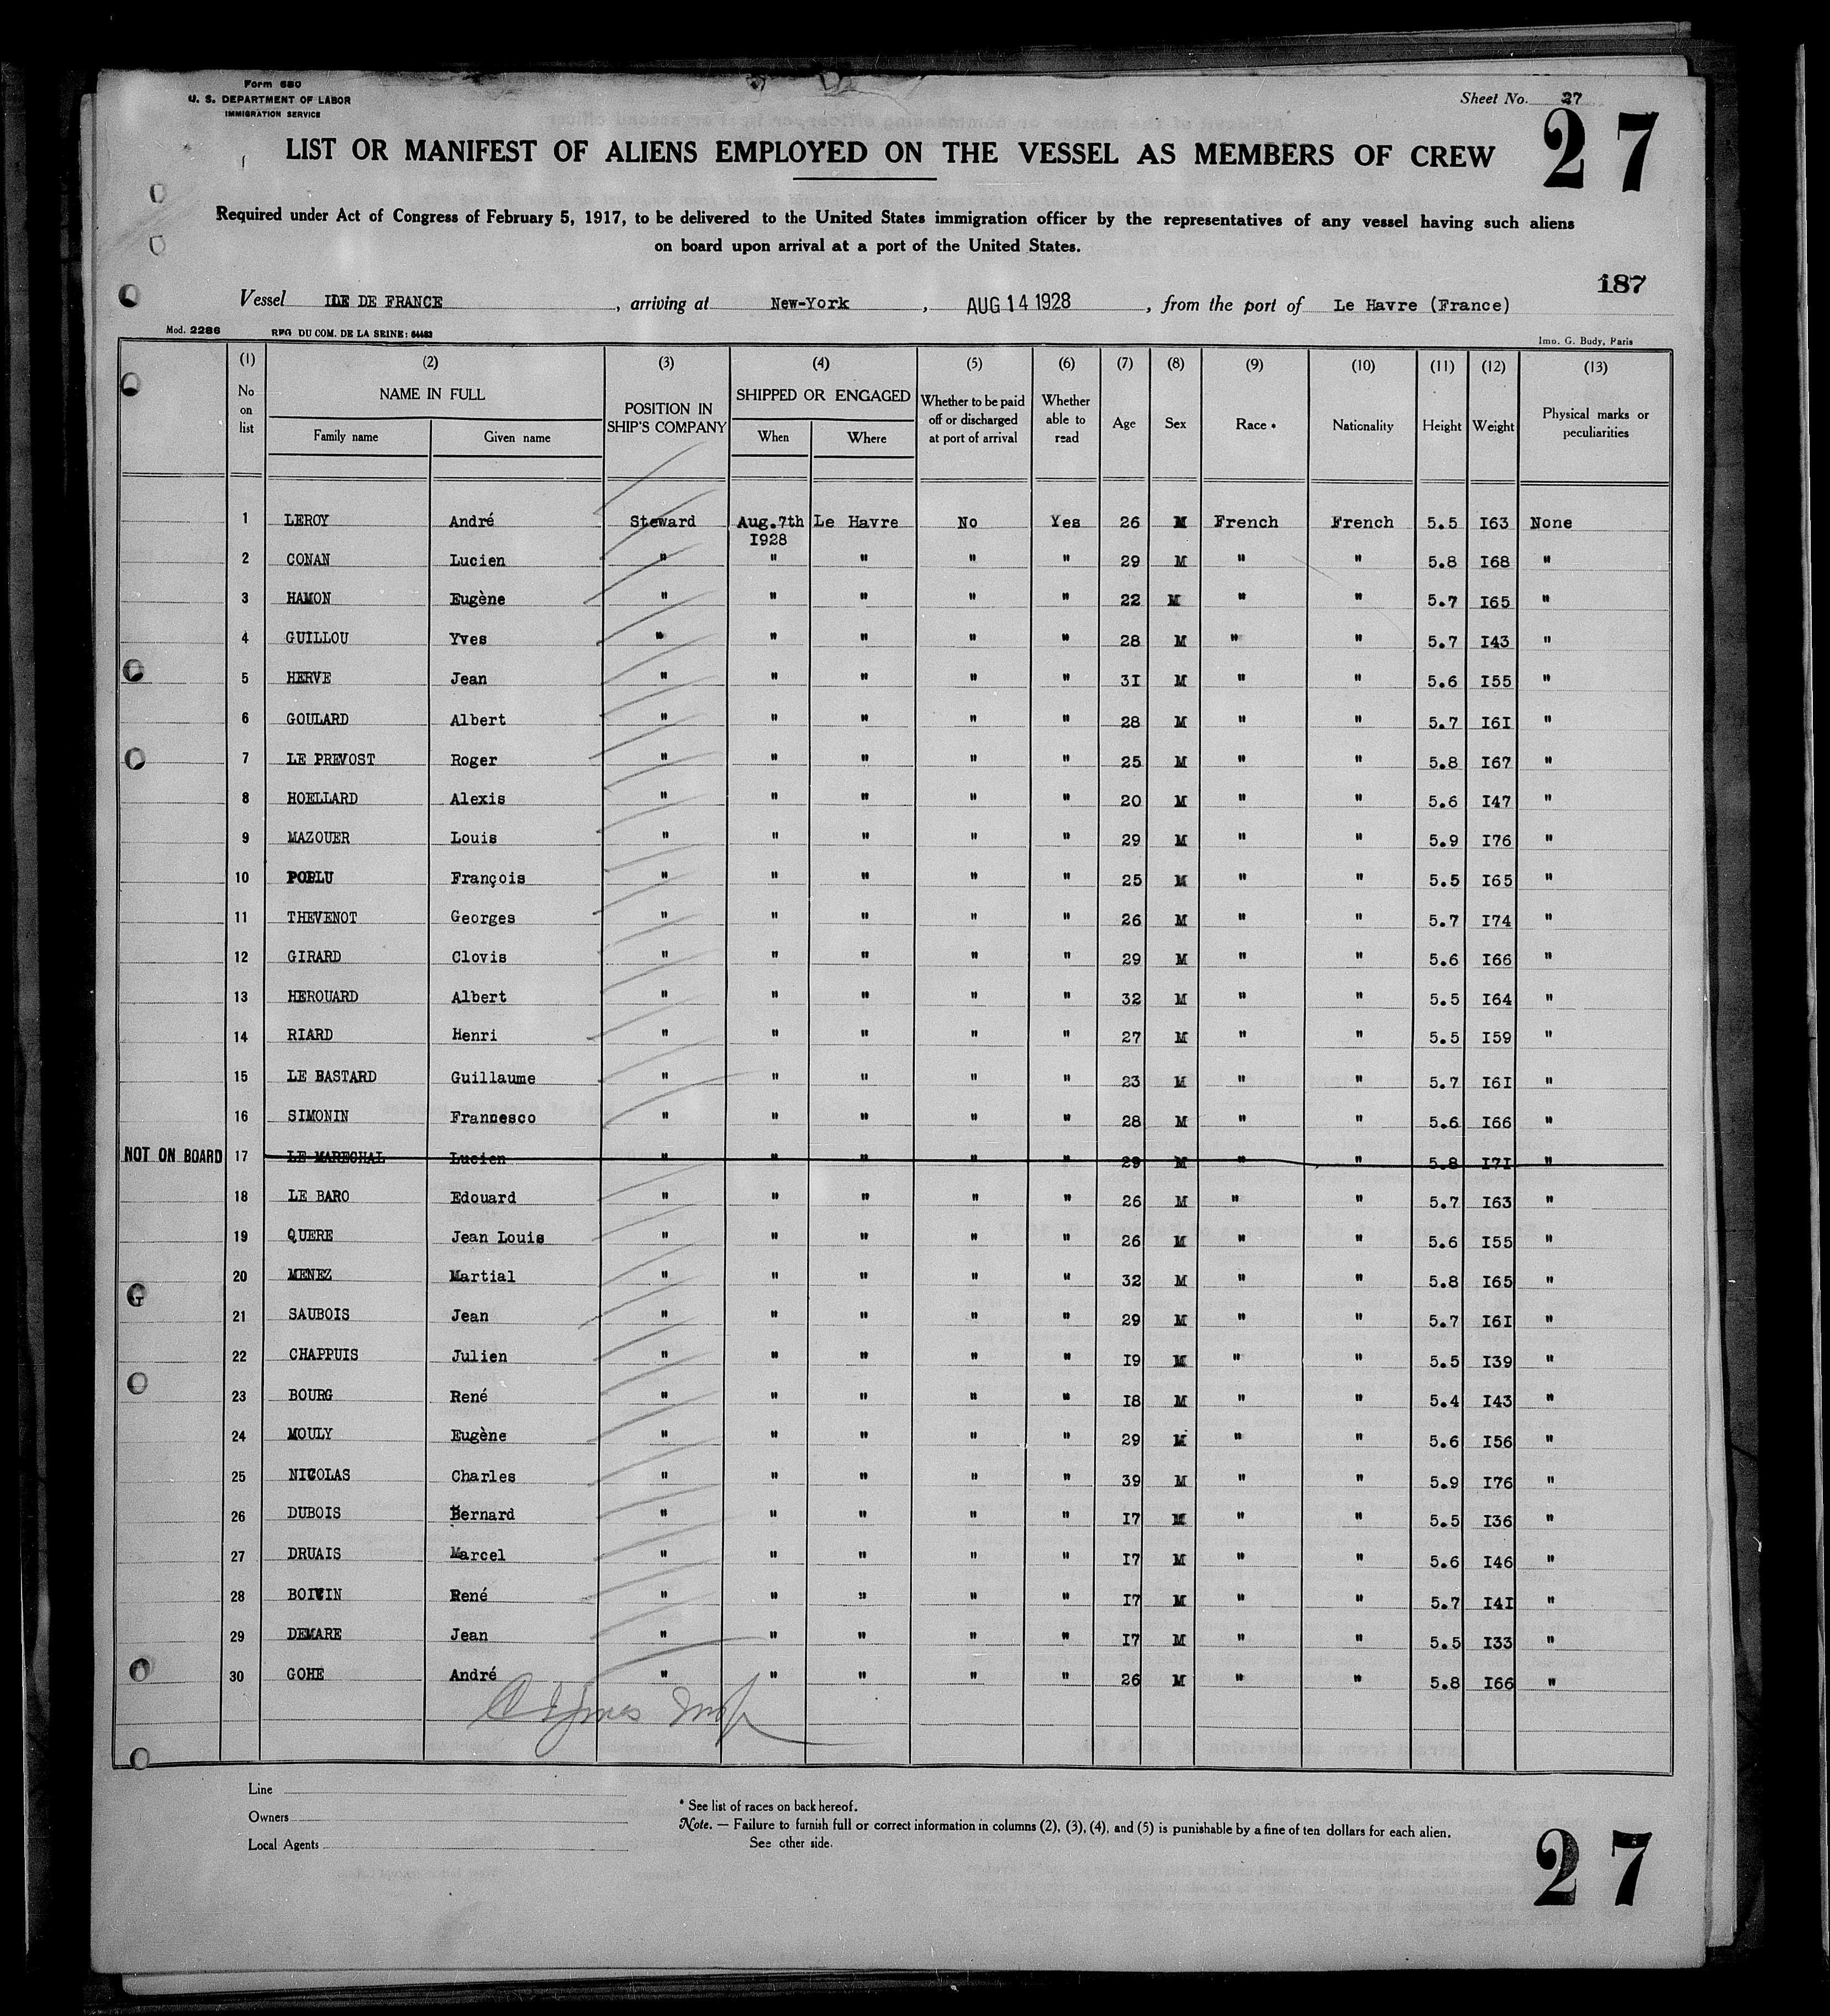 Form 680
U. S. DEPARTMENT OF LABOR
IMMIGRATION SERVICE
Sheet No. 27
27
LIST OR MANIFEST OF ALIENS EMPLOYED ON THE VESSEL AS MEMBERS OF CREW
Required under Act of Congress of February 5, 1917, to be delivered to the United States immigration officer by the representatives of any vessel having such aliens
on board upon arrival at a port of the United States.
187
Vessel ILE DE FRANCE, arriving at New-York, AUG 14 1928, from the port of Le Havre (France)
Mod. 2286 RPG DU COM. DE LA SEINE: 64483 Imo. G. Budy, Paris
(1) (2) (3) (4) (5) (6) (7) (8) (9) (10) (11) (12) (13)
No on list NAME IN FULL Family name Given name POSITION IN SHIP'S COMPANY SHIPPED OR ENGAGED When Where Whether to be paid off or discharged at port of arrival Whether able to read Age Sex Race * Nationality Height Weight Physical marks or peculiarities
1 LEROY André Steward Aug.7th I928 Le Havre No Yes 26 M French French 5.5 I63 None
2 CONAN Lucien " " " " " 29 M " " 5.8 I68 "
3 HAMON Eugène " " " " " 22 M " " 5.7 I65 "
4 GUILLOU Yves " " " " " 28 M " " 5.7 I43 "
5 HERVE Jean " " " " " 3I M " " 5.6 I55 "
6 GOULARD Albert " " " " " 28 M " " 5.7 I6I "
7 LE PREVOST Roger " " " " " 25 M " " 5.8 I67 "
8 HOELLARD Alexis " " " " " 20 M " " 5.6 I47 "
9 MAZOUER Louis " " " " " 29 M " " 5.9 I76 "
10 POELU François " " " " " 25 M " " 5.5 I65 "
11 THEVENOT Georges " " " " " 26 M " " 5.7 I74 "
12 GIRARD Clovis " " " " " 29 M " " 5.6 I66 "
13 HEROUARD Albert " " " " " 32 M " " 5.5 I64 "
14 RIARD Henri " " " " " 27 M " " 5.5 I59 "
15 LE BASTARD Guillaume " " " " " 23 M " " 5.7 I6I "
16 SIMONIN Frannesco " " " " " 28 M " " 5.6 I66 "
NOT ON BOARD 17 LE MARECHAL Lucien " " " " " 29 M " " 5.8 I7I "
18 LE BARO Edouard " " " " " 26 M " " 5.7 I63 "
19 QUERE Jean Louis " " " " " 26 M " " 5.6 I55 "
20 MENEZ Martial " " " " " 32 M " " 5.8 I65 "
21 SAUBOIS Jean " " " " " 29 M " " 5.7 I6I "
22 CHAPPUIS Julien " " " " " I9 M " " 5.5 I39 "
23 BOURG René " " " " " I8 M " " 5.4 I43 "
24 MOULY Eugène " " " " " 29 M " " 5.6 I56 "
25 NICOLAS Charles " " " " " 39 M " " 5.9 I76 "
26 DUBOIS Bernard " " " " " I7 M " " 5.5 I36 "
27 DRUAIS Marcel " " " " " I7 M " " 5.6 I46 "
28 BOIVIN René " " " " " I7 M " " 5.7 I4I "
29 DEMARE Jean " " " " " I7 M " " 5.5 I33 "
30 GOHE André " " " " " 26 M " " 5.8 I66 "
Line
Owners
Local Agents
* See list of races on back hereof.
Note. — Failure to furnish full or correct information in columns (2), (3), (4), and (5) is punishable by a fine of ten dollars for each alien.
See other side.
27